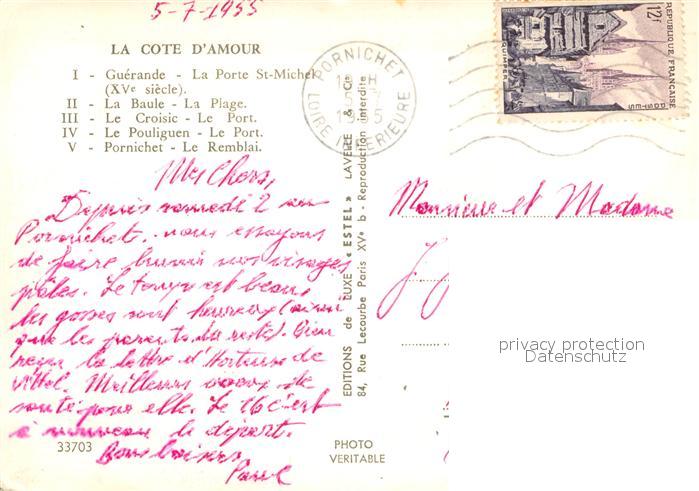 5-7-1955
LA COTE D'AMOUR
I - Guérande - La Porte St-Michel
(XVe siècle).
II - La Baule - La Plage.
III - Le Croisic - Le Port.
IV - Le Pouliguen - Le Port.
V - Pornichet - Le Remblai.
Mes Chers,
Depuis samedi 2 au
Pornichet.. nous essayons
de faire brunir nos visages
pâles. Le temps est beau,
les gosses sont heureux (ainsi
que les parents du reste). Bien
reçu la lettre d'Hortense de
Vittel. Meilleurs voeux de
santé pour elle. Le 16 c'est
à nouveau le départ.
Bons baisers
Paul
33703
PHOTO
VERITABLE
EDITIONS de LUXE « ESTEL » LAVELLE & Cie
84, Rue Lecourbe Paris XVe b - Reproduction interdite
PORNICHET
LOIRE INFERIEURE
1955
12f
REPUBLIQUE FRANÇAISE
POSTES
QUIMPER
Monsieur et Madame
J
privacy protection
Datenschutz